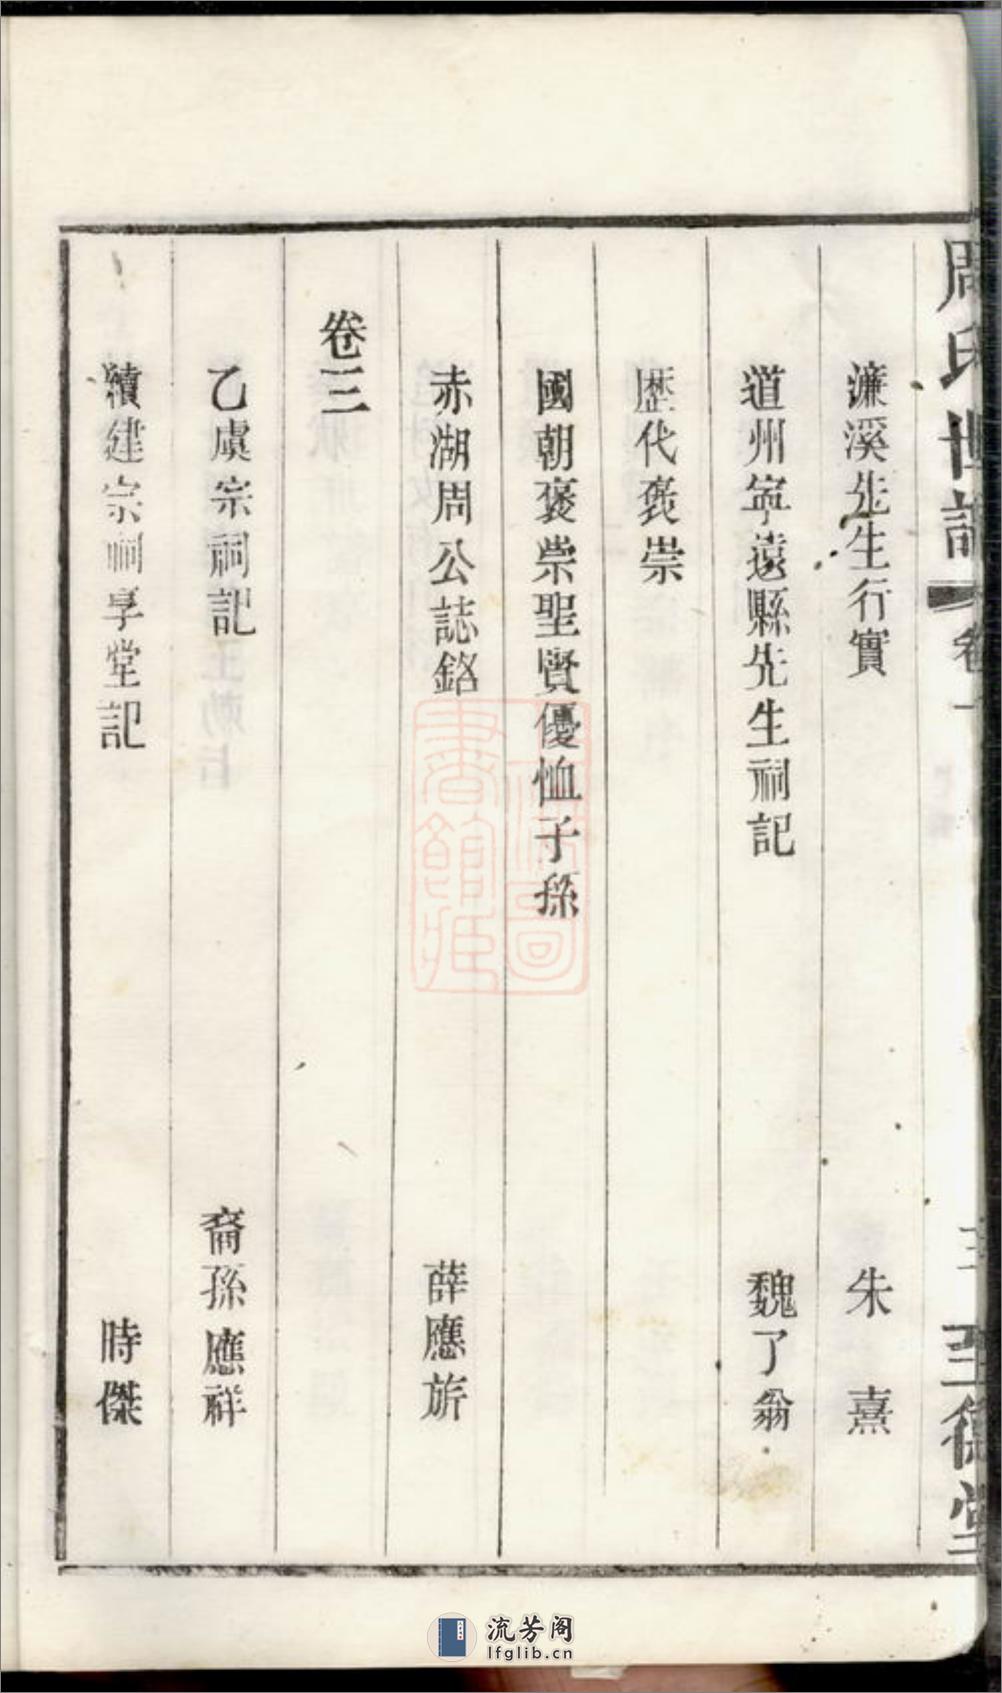 周氏世譜 卷一 至德堂
濂溪先生行實 朱熹
道州寧遠縣先生祠記 魏了翁
歷代褒崇
國朝褒崇聖賢優恤子孫
赤湖周公誌銘 薛應旂
卷三
乙虞宗祠記 裔孫應祥
續建宗祠享堂記 時傑
流芳阁
lfglib.cn